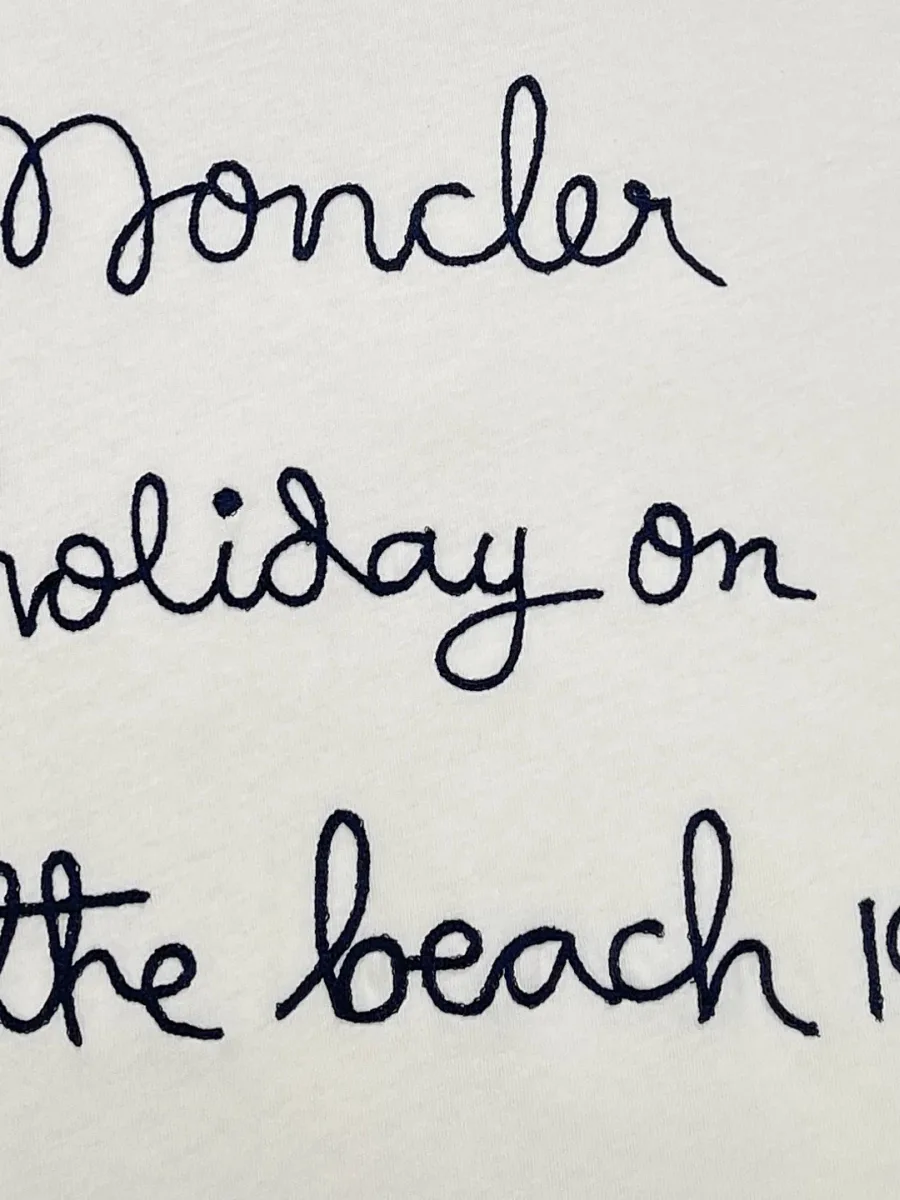 Moncler
holiday on
the beach